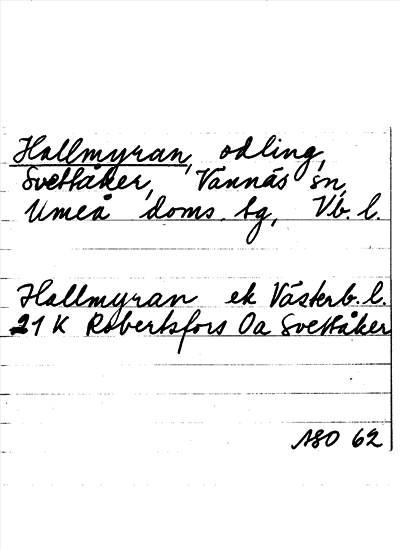 Hallmyran, odling,
Svedåker, Vännäs sn,
Umeå doms. tg, Vb. l.
Hallmyran ek Västerb. l.
21 K Robertsfors Oa Svedåker
ASO 62